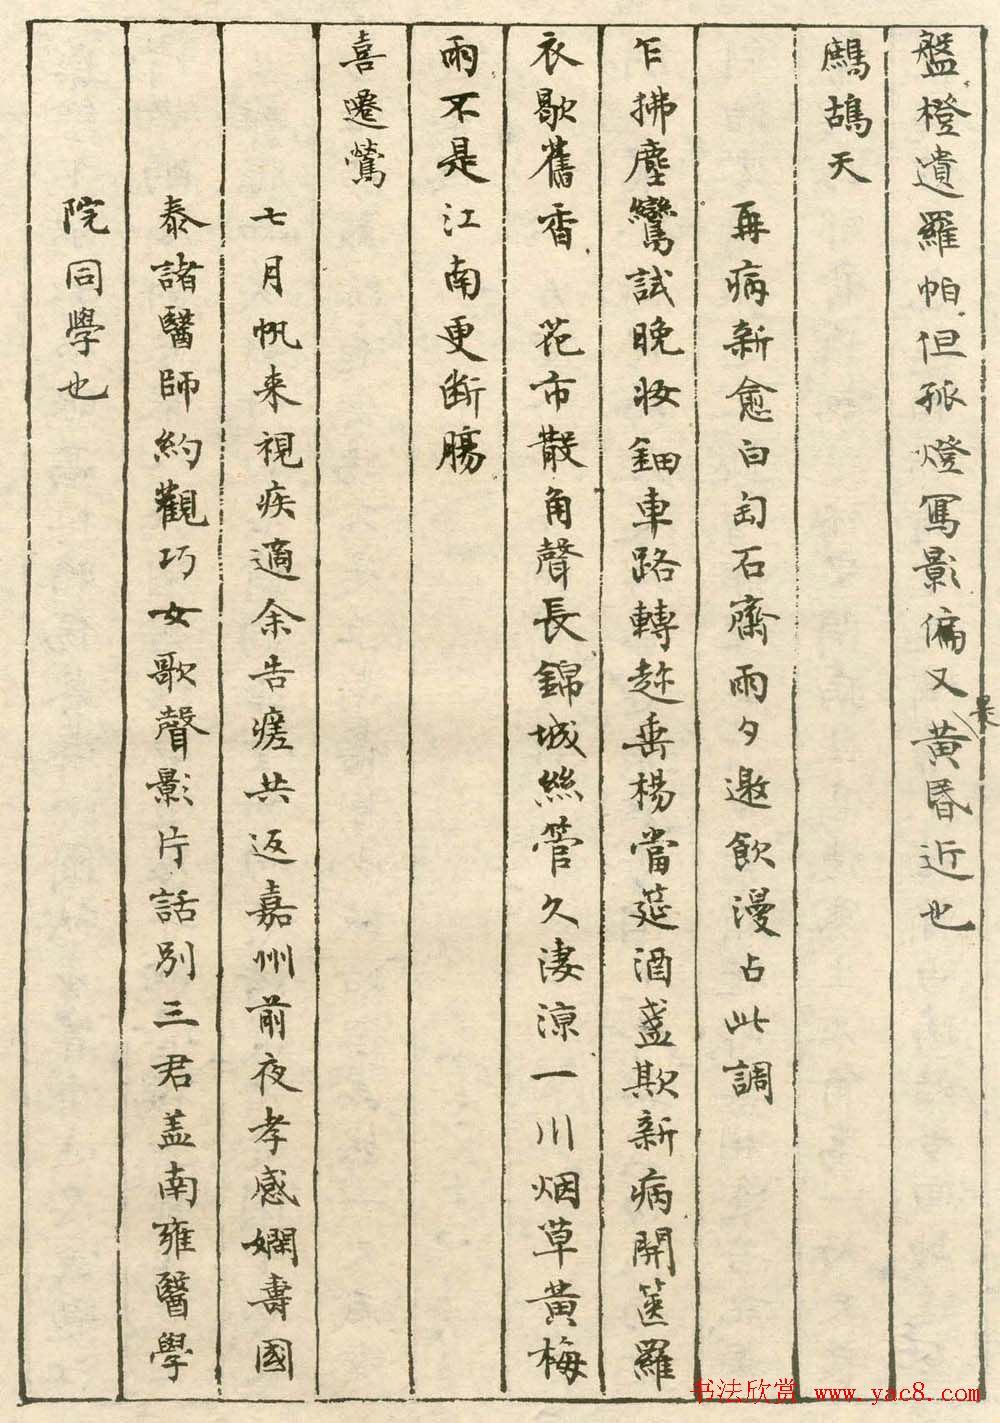 盤橙遺羅帕但孤燈寫影偏又黃昏近也
鷓鴣天
再病新愈白匋石齋雨夕邀飲漫占此調
乍拂塵鸞試晚妝鈿車路轉趂垂楊當筵酒盞欺新病開篋羅
衣歇舊香　花市散角聲長錦城絲管久淒涼一川烟草黃梅
雨不是江南更斷腸
喜遷鶯
七月帆来視疾適余告瘥共返嘉州前夜孝感嫻壽國
泰諸醫師約觀巧女歌聲影片話別三君盖南雍醫學
院同學也
书法欣赏 www.yac8.com